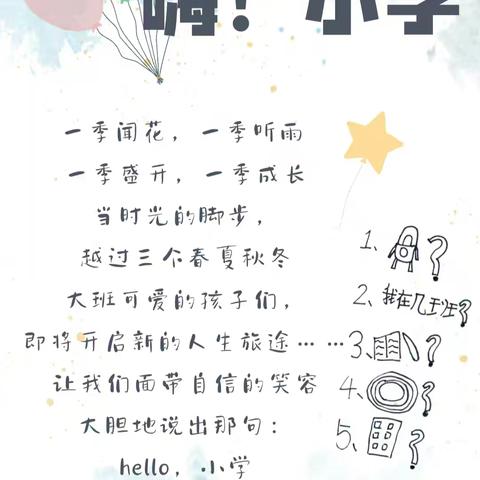 嗨！小学
一季闻花，一季听雨
一季盛开，一季成长
当时光的脚步，
越过三个春夏秋冬
大班可爱的孩子们，
即将开启新的人生旅途……
让我们面带自信的笑容
大胆地说出那句：
hello，小学
1、？
2、我在几班？
3、？
4、？
5、？